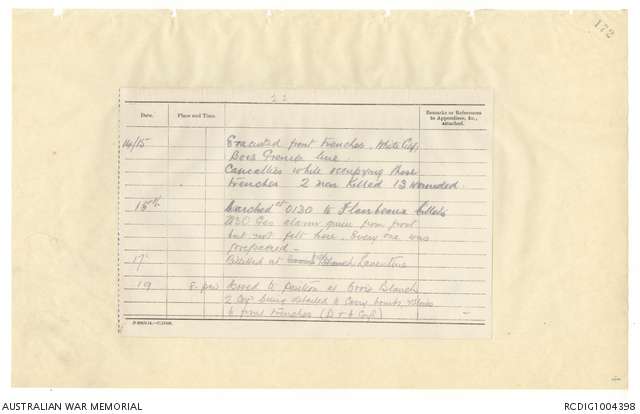 172
22
Date.
Place and Time.
Remarks or References to Appendices, &c., Attached.
14/15
Evacuated front Trenches. White City
Bois Grenier line.
Casualties while occupying these
Trenches 2 men Killed 13 wounded.
15th
Marched at 0130 to Flambeaux billets
Gas alarm given from front
but not felt here. Every one was
prepared.
17
Billetted at Laventie
19
8. pm
Moved to position at Croix Blanch
2 Coy being detailed to Carry bombs
to front trenches (D & A Coys)
AUSTRALIAN WAR MEMORIAL
RCDIG1004398